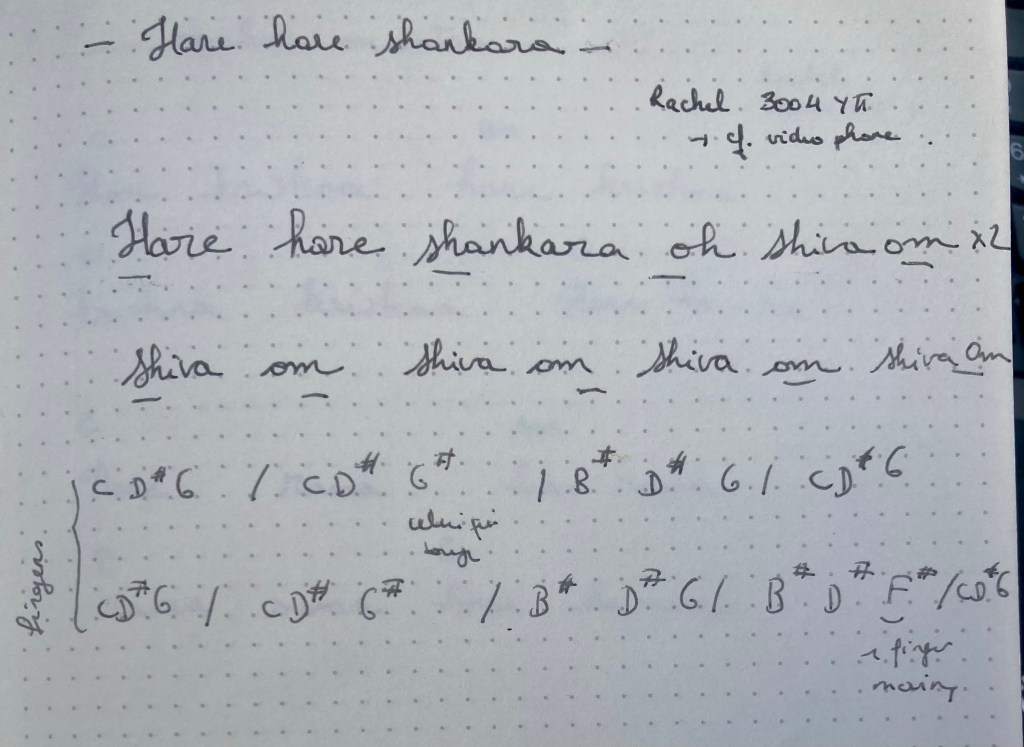 - Hare hare shankara -
Rachel 3004 YTT
→ cf. video phone.
Hare hare shankara oh shiva om x2
shiva om shiva om shiva om shiva Om
C D# G / C D# G# / B# D# G / C D# G
celui qui bouge
fingers
C D# G / C D# G# / B# D# G / B# D# F# / C D# G
finger
moving